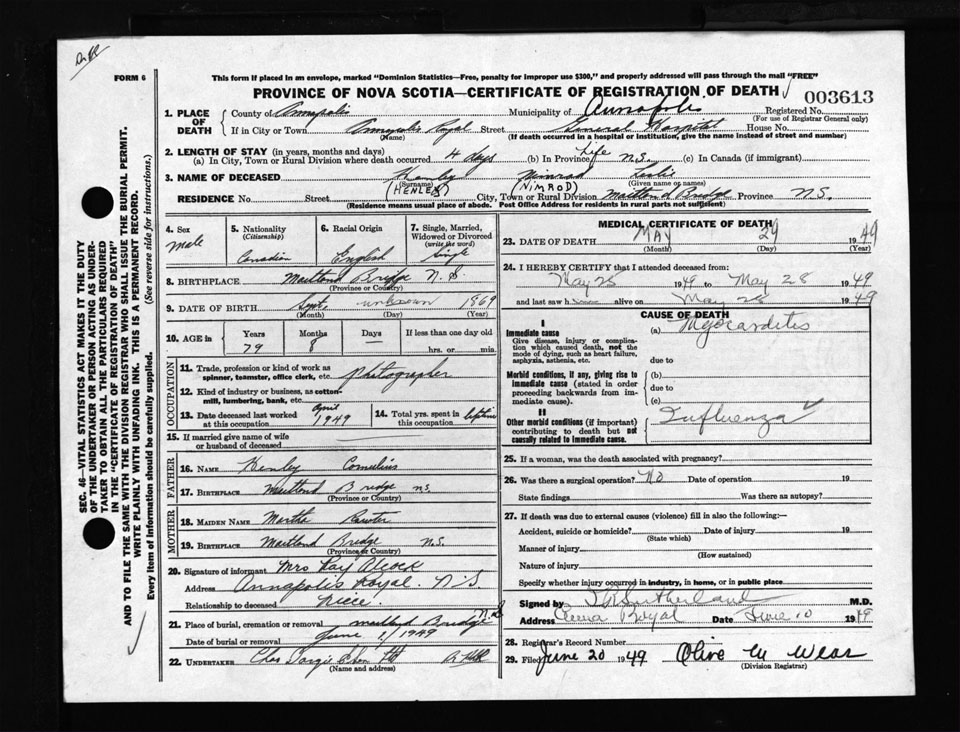 FORM 6
This form if placed in an envelope, marked "Dominion Statistics—Free, penalty for improper use $300," and properly addressed will pass through the mail "FREE"
PROVINCE OF NOVA SCOTIA—CERTIFICATE OF REGISTRATION OF DEATH
003613
SEC. 46—VITAL STATISTICS ACT MAKES IT THE DUTY
OF THE UNDERTAKER OR PERSON ACTING AS UNDER-
TAKER TO OBTAIN ALL THE PARTICULARS REQUIRED
IN THE "CERTIFICATE OF REGISTRATION OF DEATH"
AND TO FILE THE SAME WITH THE DIVISION REGISTRAR WHO SHALL ISSUE THE BURIAL PERMIT.
WRITE PLAINLY WITH UNFADING INK. THIS IS A PERMANENT RECORD.
Every item of information should be carefully supplied. (See reverse side for instructions.)
1. PLACE OF DEATH
County of Annapolis Municipality of Annapolis Registered No.
(For use of Registrar General only)
If in City or Town Annapolis Royal Street General Hospital House No.
(Name) (If death occurred in a hospital or institution, give the name instead of street and number)
2. LENGTH OF STAY (in years, months and days)
(a) In City, Town or Rural Division where death occurred 4 days (b) In Province Life N.S. (c) In Canada (if immigrant)
3. NAME OF DECEASED Henley Nimrod Leslie
(Surname) (Given name or names)
(HENLEY) (NIMROD)
RESIDENCE No. Street City, Town or Rural Division Maitland Bridge Province N.S.
(Residence means usual place of abode. Post Office Address for residents in rural parts not sufficient)
4. Sex
Male
5. Nationality
(Citizenship)
Canadian
6. Racial Origin
English
7. Single, Married,
Widowed or Divorced
(write the word)
Single
8. BIRTHPLACE Maitland Bridge N.S.
(Province or Country)
9. DATE OF BIRTH Sept. unknown 1869
(Month) (Day) (Year)
10. AGE in
Years Months Days If less than one day old
79 8 — hrs. or min.
OCCUPATION
11. Trade, profession or kind of work as
spinner, teamster, office clerk, etc. Photographer
12. Kind of industry or business, as cotton-
mill, lumbering, bank, etc.
13. Date deceased last worked
at this occupation April 1949
14. Total yrs. spent in
this occupation lifetime
15. If married give name of wife
or husband of deceased
FATHER
16. NAME Henley Cornelius
17. BIRTHPLACE Maitland Bridge N.S.
(Province or Country)
MOTHER
18. MAIDEN NAME Martha
19. BIRTHPLACE Maitland Bridge N.S.
(Province or Country)
20. Signature of informant Mrs Ray Alcock
Address Annapolis Royal. N S
Relationship to deceased Niece.
21. Place of burial, cremation or removal Maitland Bridge N.S
Date of burial or removal June 1/1949
22. UNDERTAKER Chas
(Name and address)
MEDICAL CERTIFICATE OF DEATH
23. DATE OF DEATH MAY 29 1949
(Month) (Day) (Year)
24. I HEREBY CERTIFY that I attended deceased from:
May 25 1949 to May 28 1949
and last saw h alive on May 28 1949
CAUSE OF DEATH
I
Immediate cause
Give disease, injury or complica-
tion which caused death, not the
mode of dying, such as heart failure,
asphyxia, asthenia, etc.
(a) Myocarditis
due to
Morbid conditions, if any, giving rise to
immediate cause (stated in order
proceeding backwards from im-
mediate cause).
(b)
due to
(c)
II
Other morbid conditions (if important)
contributing to death but not
causally related to immediate cause.
Influenza
25. If a woman, was the death associated with pregnancy?
26. Was there a surgical operation? No Date of operation 19
State findings Was there an autopsy?
27. If death was due to external causes (violence) fill in also the following:—
Accident, suicide or homicide? Date of injury 19
(State which)
Manner of injury
(How sustained)
Nature of injury
Specify whether injury occurred in industry, in home, or in public place
Signed by Sutherland M.D.
Address Royal Date June 10 1949
28. Registrar's Record Number
29. Filed June 20 1949 Olive M Wear
(Division Registrar)